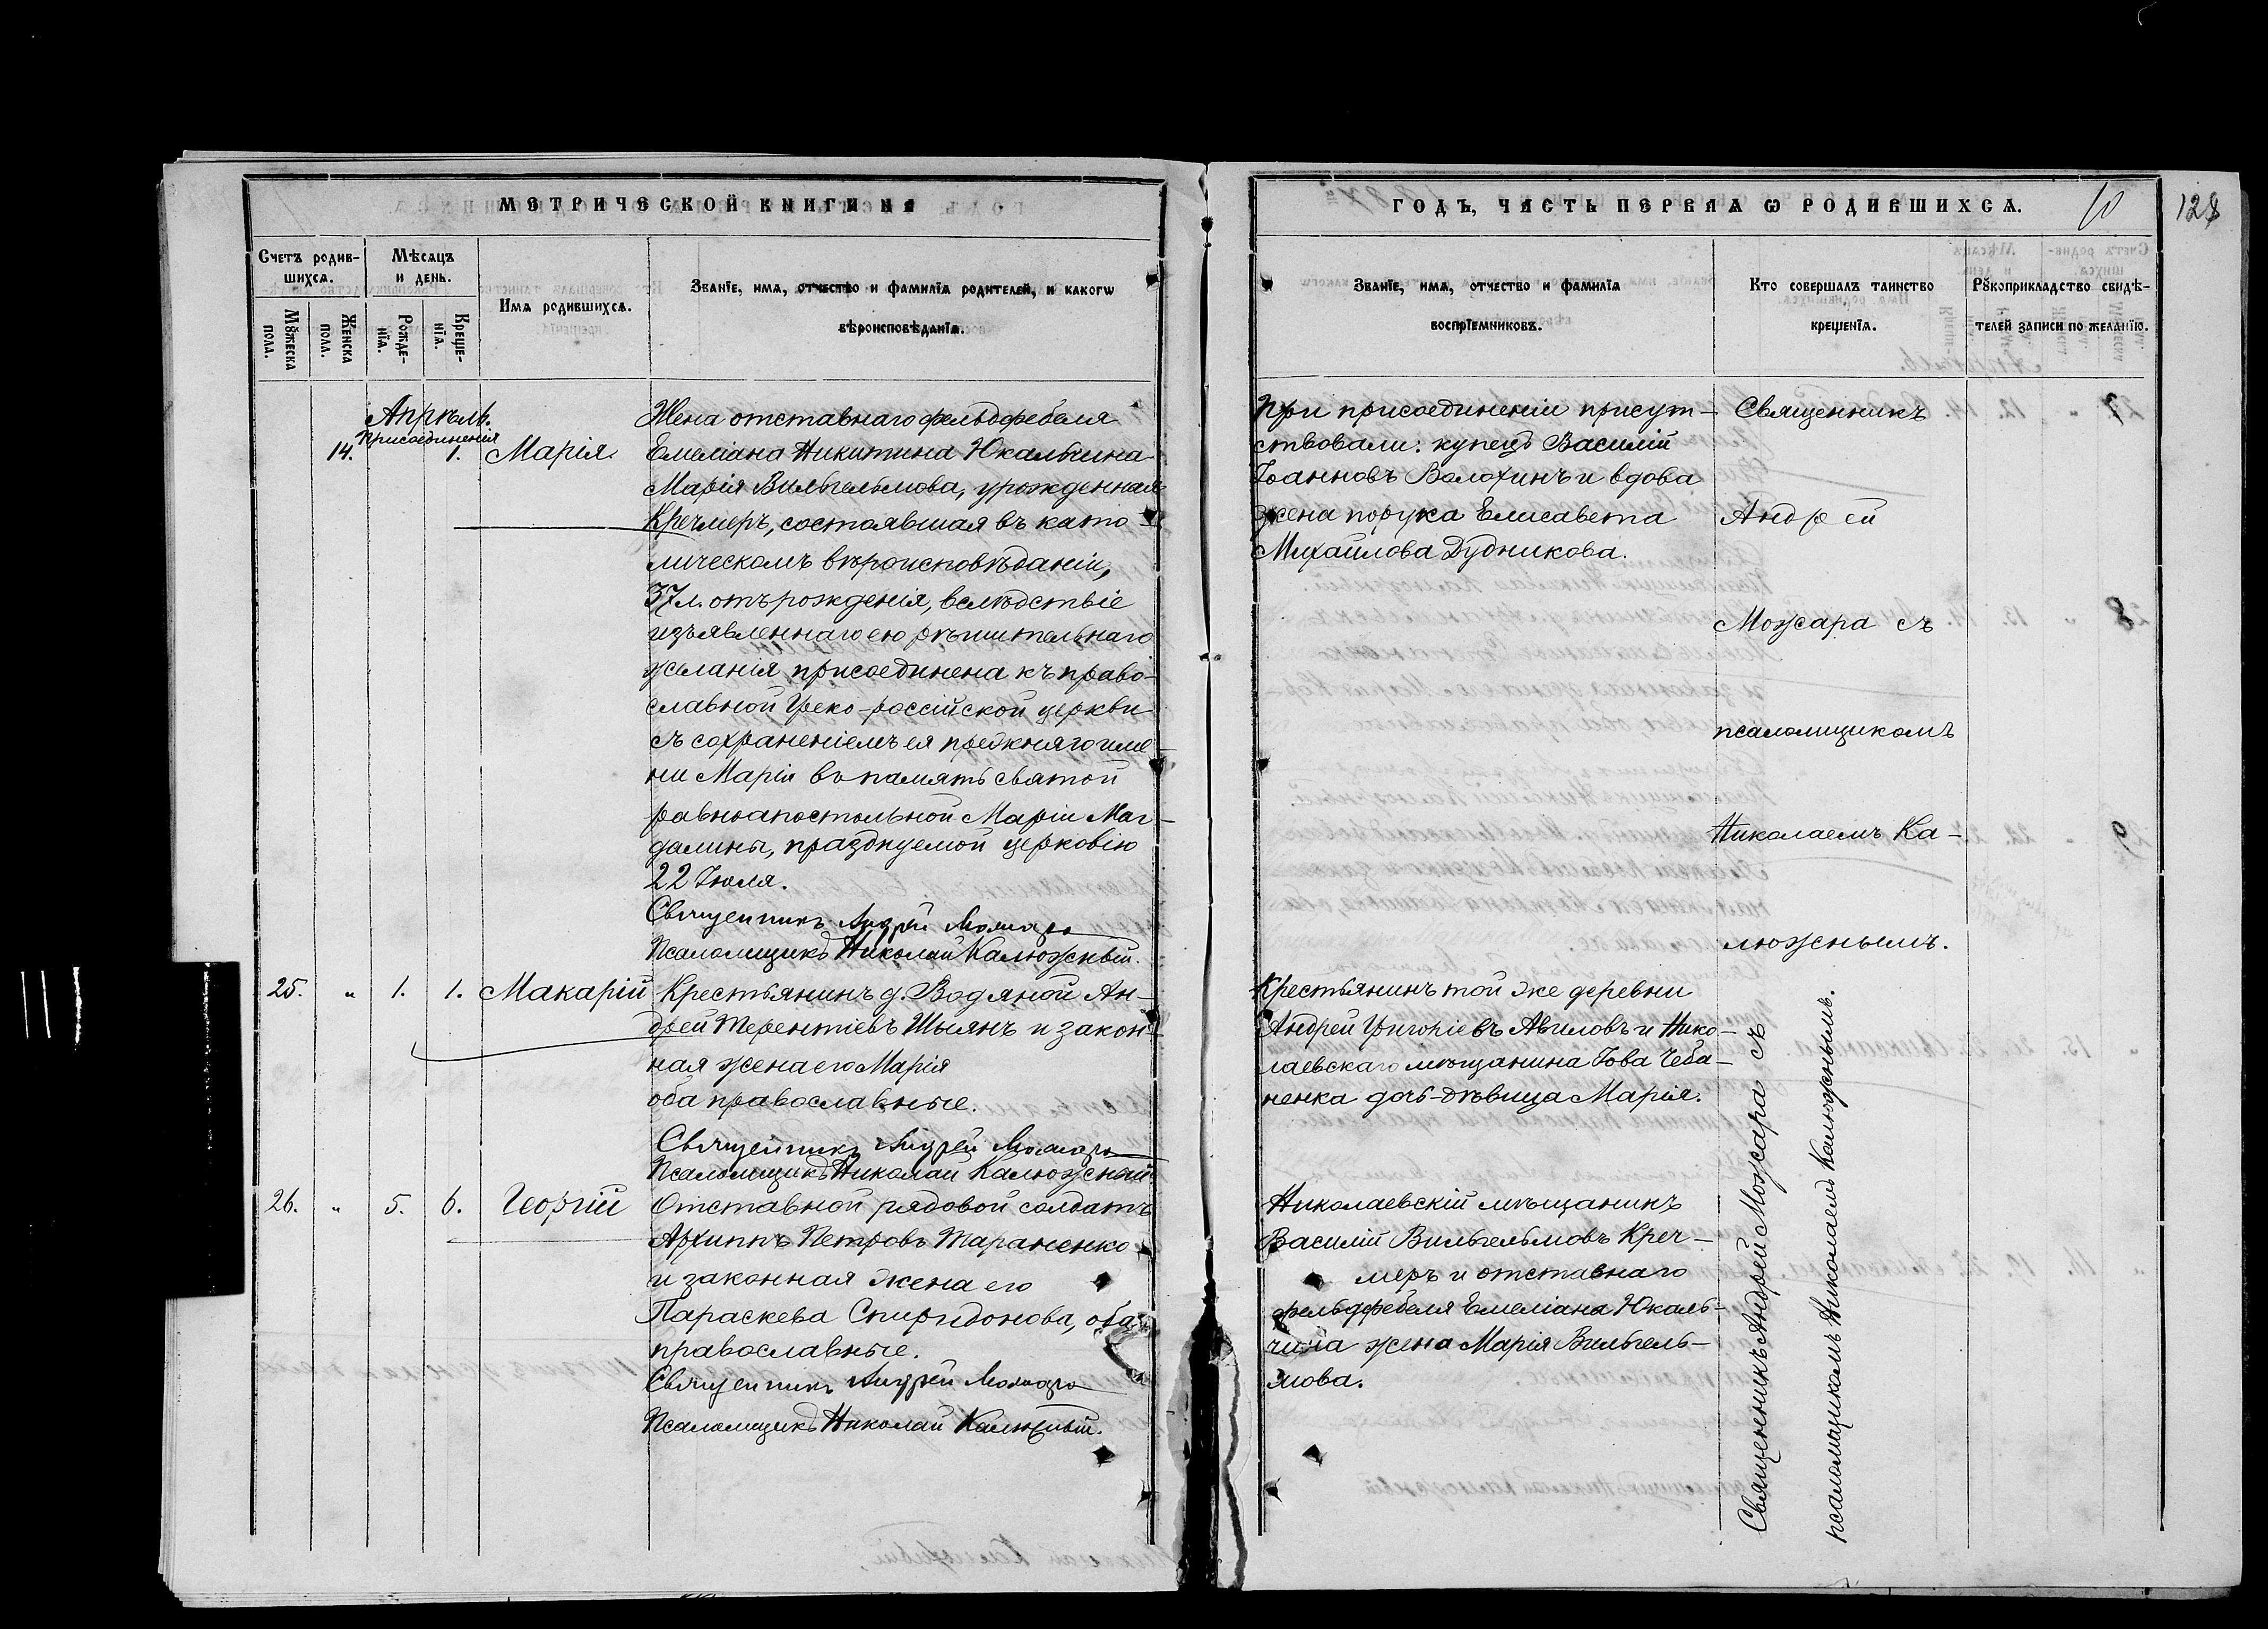 МЕТРИЧЕСКОЙ КНИГИ НА
Счетъ родив-
шихсѧ.
Мѣсѧцъ
и день.
Имѧ родившихсѧ.
Званїе, имѧ, отчество и фамилїѧ родителей, и какогѡ
вѣроисповѣданїѧ.
Мꙋжеска
пола.
Женска
пола.
Рожде-
нїѧ.
Креще-
нїѧ.
Апрѣль.
Присоединенія
14.
1.
Марія
Жена отставнаго фельдфебеля
Емеліана Никитина Юкальчина
Марія Вильгельмова, урожденная
Кречмеръ, состоявшая въ като-
лическомъ вѣроисповѣданіи,
37 л. отъ рожденія, вслѣдствіе
изъявленнаго ею рѣшительнаго
желанія, присоединена къ право-
славной Греко-россійской церкви
съ сохраненіемъ ея прежняго име-
ни Марія въ память святой
равноапостольной Маріи Маг-
далины, празднуемой церковію
22 Іюля.
Священникъ Андрей Можара
Псаломщикъ Николай Калюжный.
25. " 1. 1. Макарій
Крестьянинъ д. Водяной Ан-
дрей Терентіевъ Шыянъ и закон-
ная жена его Марія
оба православные.
Священникъ Андрей Можара
Псаломщикъ Николай Калюжный.
26. " 5. 6. Георгій
Отставной рядовой солдатъ
Архиппъ Петровъ Тараненко
и законная жена его
Параскева Спиридонова, оба
православные.
Священникъ Андрей Можара
Псаломщикъ Николай Калюжный.
ГОДЪ, ЧАСТЬ ПЕРВАѦ Ѡ РОДИВШИХСѦ.
10
128
Званїе, имѧ, отчество и фамилїѧ
воспрїемниковъ.
Кто совершалъ таинство
крещенїѧ.
Рꙋкоприкладство свидѣ-
телей записи по желанїю.
При присоединеніи присут-
ствовали: купецъ Василій
Іоанновъ Волохинъ и вдова
жена Елисавета
Михаилова Дудникова.
Священникъ
Андрей
Можара съ
псаломщикомъ
Николаемъ Ка-
люжнымъ.
Крестьянинъ той же деревни
Андрей Григоріевъ Авиловъ и Нико-
лаевскаго мѣщанина Іова Чеба-
ненка дочь-дѣвица Марія.
Николаевскій мѣщанинъ
Василій Вильгельмовъ Креч-
меръ и отставнаго
фельдфебеля Емеліана Юкаль-
чина жена Марія Вильгель-
мова.
Священникъ Андрей Можара съ
псаломщикомъ Николаемъ Калюжнымъ.